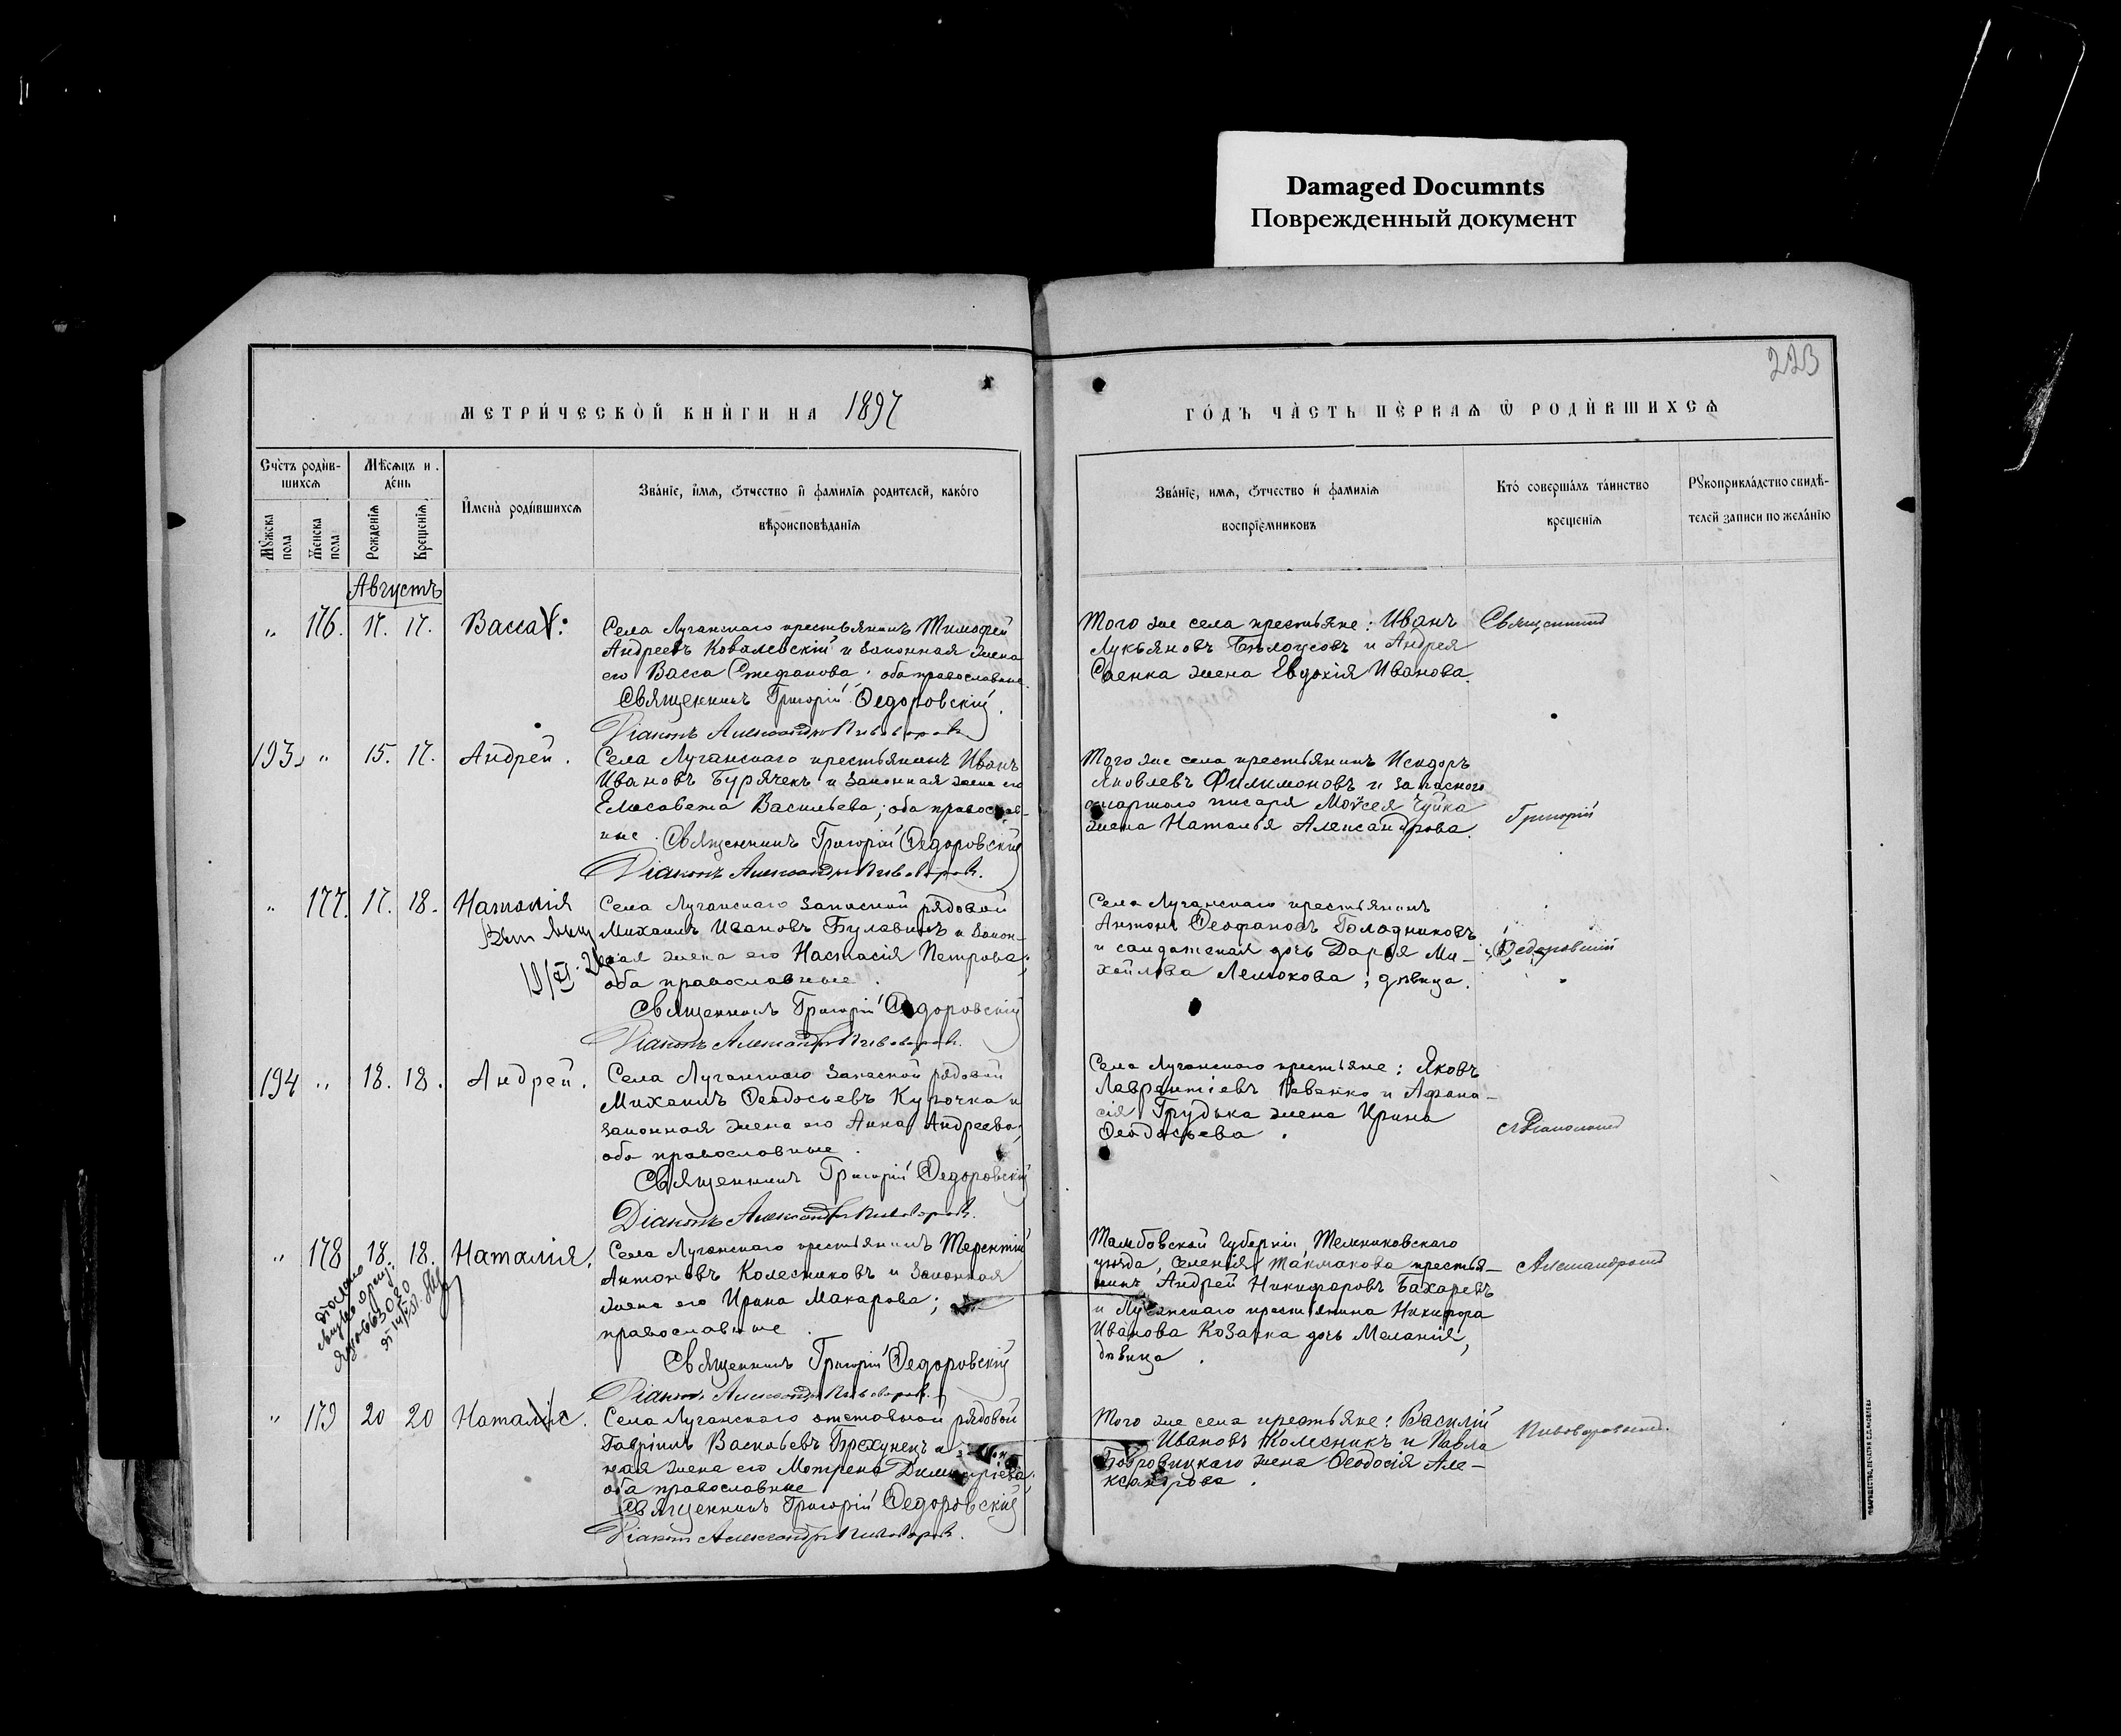 Damaged Documnts
Поврежденный документ
223
МЕТРИ́ЧЕСКОЙ КНИ́ГИ НА 1897
ГО́ДЪ ЧА́СТЬ ПЕ́РВАѦ Ѿ РОДИ́ВШИХСѦ
Сче́тъ роди́в-
шихсѧ
Мѣсѧцъ и
де́нь
Мꙋжеска
пола
Женска
пола
Рожденїѧ
Крещенїѧ
И҆мена̀ роди́вшихсѧ
Зва́нїе, и҆мѧ, ѻтчество и҆ фамилїѧ родителей, како́го
вѣроисповѣданїѧ
Зва́нїе, имѧ, ѻтчество и҆ фамилїѧ
воспрїемниковъ
Кто̀ соверша́лъ та́инство
крещенїѧ
Рꙋкоприкла́дство свидѣ-
телей записи по жела́нїю
Августъ
" 176. 17. 17. Васса
Села Луганскаго крестьянинъ Тимофей
Андреевъ Ковалевскій и законная жена
его Васса Стефанова; оба православные.
Священникъ Григорій Ѳедоровскій.
Діаконъ Александръ Пивоваровъ
Того же села крестьяне: Иванъ
Лукьяновъ Бѣлоусовъ и Андрея
Саенка жена Евдокія Иванова.
Священникъ
193. " 15. 17. Андрей.
Села Луганскаго крестьянинъ Иванъ
Ивановъ Бурячекъ и законная жена его
Елисавета Васильева; оба православ-
ные. Священникъ Григорій Ѳедоровскій
Діаконъ Александръ Пивоваровъ.
Того же села крестьянинъ Исидоръ
Яковлевъ Филимоновъ и запаснаго
старшаго писаря Моѵсея Чуйка
жена Наталья Александрова.
Григорій
" 177. 17. 18. Наталія
Села Луганскаго запасной рядовой
Михаилъ Ивановъ Булавинъ и закон-
ная жена его Настасія Петрова;
оба православные.
Священникъ Григорій Ѳедоровскій
Діаконъ Александръ Пивоваровъ.
Села Луганскаго крестьянинъ
Антонъ Ѳеофановъ Голодниковъ
и солдатская дочь Дарья Ми-
хайлова Лемюкова; дѣвица.
Ѳедоровскій
194 " 18. 18. Андрей.
Села Луганскаго запасной рядовой
Михаилъ Ѳеодосьевъ Курочка и
законная жена его Анна Андреева;
оба православные.
Священникъ Григорій Ѳедоровскій
Діаконъ Александръ Пивоваровъ.
Села Луганскаго крестьяне: Яковъ
Лаврентіевъ Левенко и Афана-
сія Грудька жена Ирина
Ѳеодосьева.
" 178 18. 18. Наталія.
Села Луганскаго крестьянинъ Терентій
Антоновъ Колесниковъ и законная
жена его Ирина Макарова;
православные.
Священникъ Григорій Ѳедоровскій
Діаконъ Александръ Пивоваровъ.
Тамбовской губерніи, Темниковскаго
уѣзда, селенія Такмакова крестья-
нинъ Андрей Никифоровъ Бахаревъ
и Луганскаго крестьянина Никифора
Иванова Козачка дочь Меланія,
дѣвица.
" 179 20 20 Наталія.
Села Луганскаго отставной рядовой
Гавріилъ Васильевъ Брехунецъ и закон
ная жена его Матрена Димитріева.
оба православные
Священникъ Григорій Ѳедоровскій
Діаконъ Александръ Пивоваровъ.
Того же села крестьяне: Василій
Ивановъ Колесникъ и Павла
Бобровицкаго жена Ѳеодосія Але-
ксандрова.